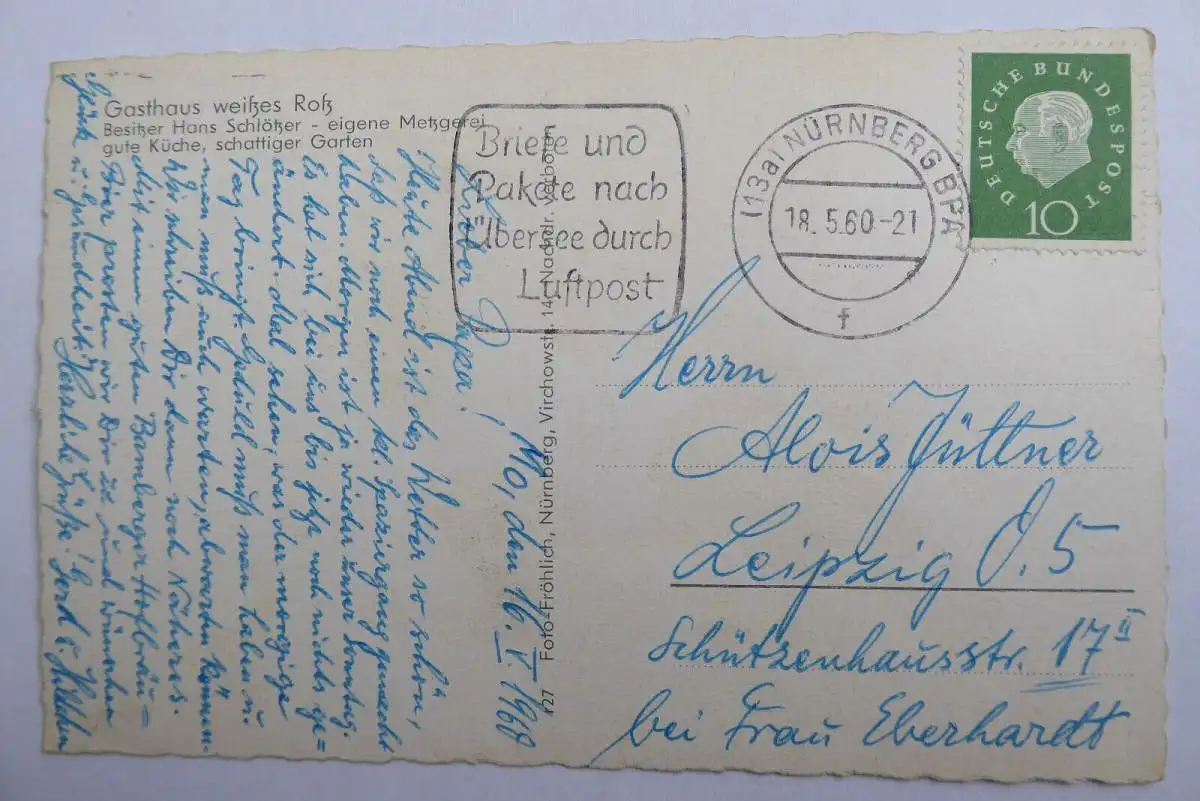 Gasthaus weißes Roß
Besitzer Hans Schlötzer - eigene Metzgerei
gute Küche, schattiger Garten
Briefe und
Pakete nach
Übersee durch
Luftpost
(13a) NÜRNBERG BPA
18. 5.60-21
f
DEUTSCHE BUNDESPOST
10
127 Foto-Fröhlich, Nürnberg, Virchowstr. 14. Nachdr. verboten
Mo, den 16. V. 1960
Lieber Papa!
Heute Abend ist das Wetter so schön,
daß wir noch einen kl. Spaziergang gemacht
haben. Morgen ist ja wieder unser Sonntag.
Es hat sich bei uns bis jetzt noch nichts ge=
ändert. Mal sehen, was der morgige
Tag bringt. Geduld muß man haben u.
man muß auch warten, abwarten können.
Wir schreiben Dir dann noch Näheres.
Mit einem guten Bamberger Hofbräu-
Bier prosten wir Dir zu und wünschen
Glück u. Gesundheit. Herzliche Grüße! Gerd u.
Herrn
Alois Jüttner
Leipzig O. 5
Schützenhausstr. 17 II
bei Frau Eberhardt